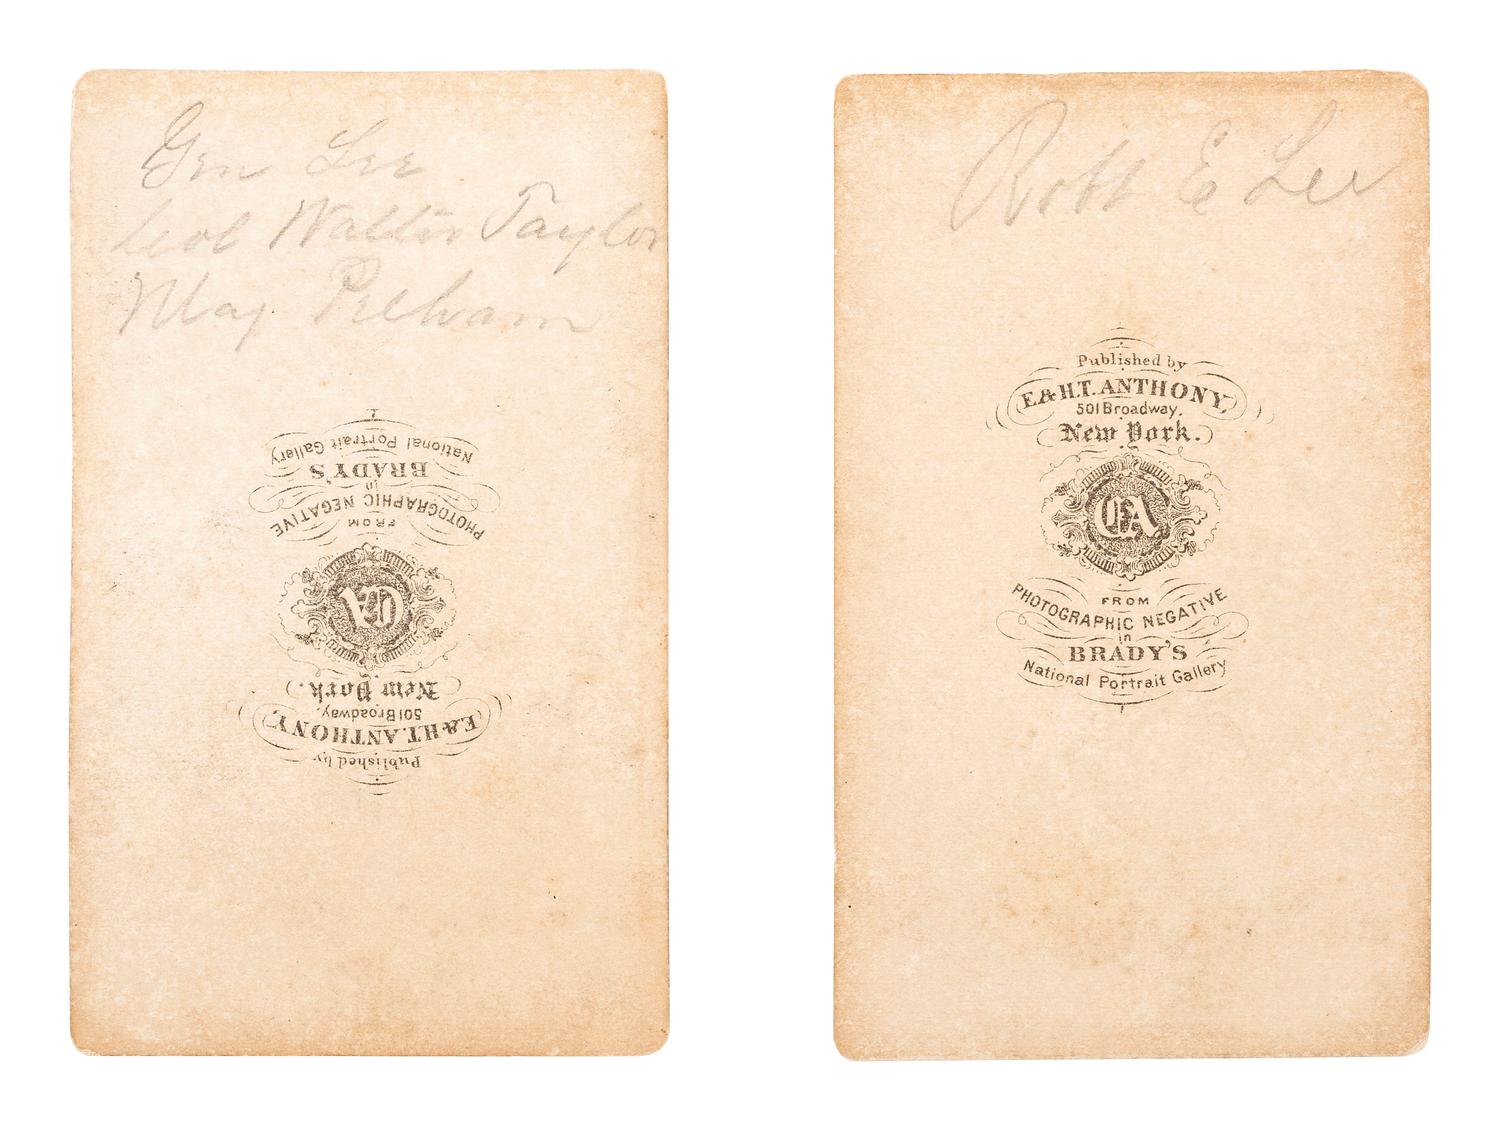 Gen Lee
Col Walter Taylor
Maj Pelham
National Portrait Gallery
BRADY'S
in
PHOTOGRAPHIC NEGATIVE
FROM
EA
New York.
501 Broadway,
E & H.T. ANTHONY,
Published by
Robt E Lee
Published by
E & H.T. ANTHONY,
501 Broadway,
New York.
EA
FROM
PHOTOGRAPHIC NEGATIVE
in
BRADY'S
National Portrait Gallery